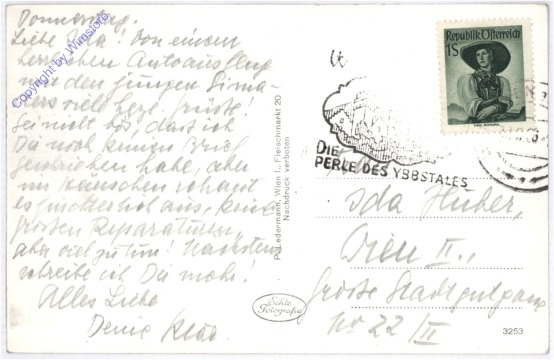 Donnerstag.
Liebe Ida! Von einem
herrlichen Autoausflug
mit den jungen
viele herzl. Grüße!
Sei nicht bös, dass ich
Dir noch keinen Brief
geschrieben habe, aber
im Häuschen schaut
es fürchterlich aus, keine
großen Reparaturen,
aber viel zu tun! Nächstens
schreibe ich Dir mehr!
Alles Liebe
Deine
Copyright by Wimstore
P. Ledermann, Wien I., Fleischmarkt 20
Nachdruck verboten
Echte
Fotografie
Republik Österreich
1S
DIE
PERLE DES YBBSTALES
Ida Huber,
Wien II.,
Große Stadtgutgasse
No 22/II
3253